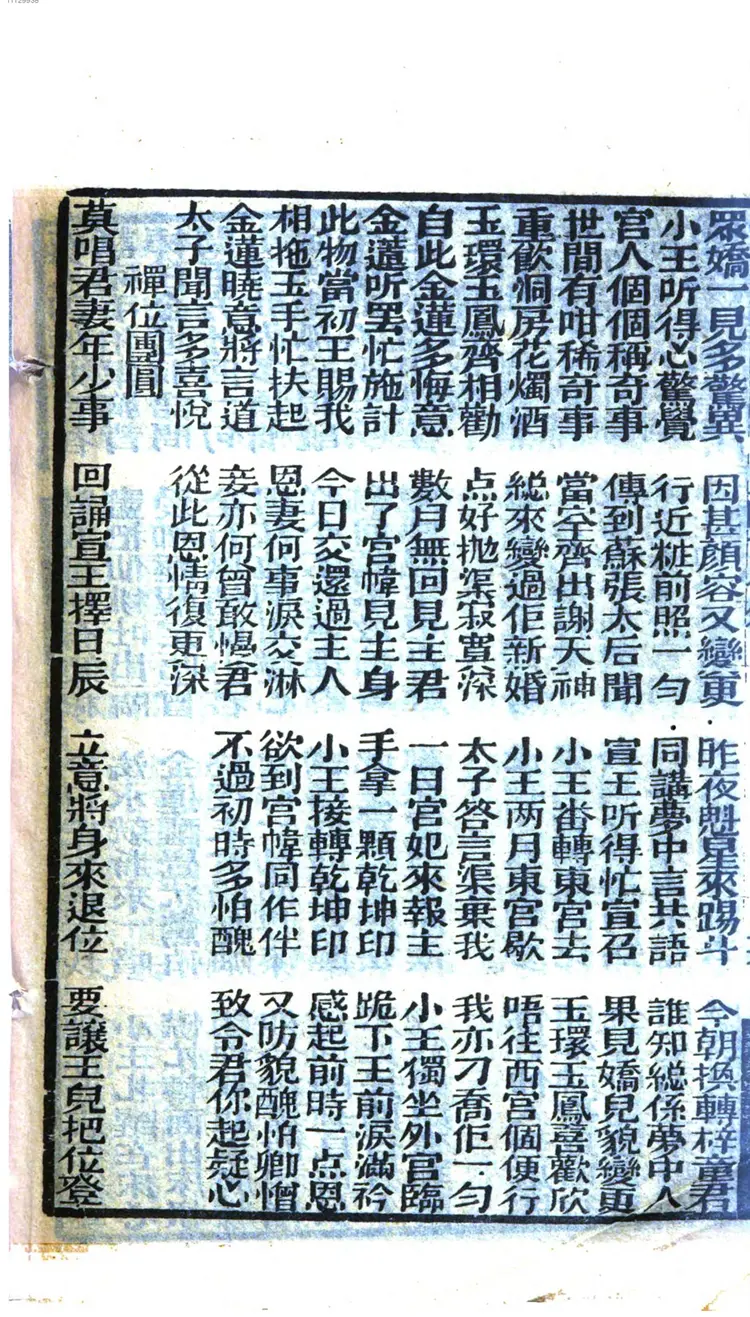 11129938
眾嬌一見多驚異 因甚顏容又變更 昨夜魁星來踢斗 今朝換轉梓童君
小王听得心驚覺 行近粧前照一勻 同講夢中言共語 誰知総係夢中人
官人個個稱奇事 傳到蘇張太后聞 宣王听得忙宣召 果見嬌兒貌變更
世間有咁稀奇事 當空齊出謝天神 小王畨轉東宮去 玉環玉鳳喜歡欣
重飲洞房花燭酒 総來變過佢新婚 小王両月東宮歇 唔往西宮個便行
玉環玉鳳齊相勸 点好拋渠寂寞深 太子答言渠棄我 我亦刁喬佢一勻
自此金蓮多悔意 數月無回見主君 一日宮妃來報主 小王獨坐外宮臨
金蓮听罢忙施計 出了宮幃見主身 手拿一顆乾坤印 跪下王前淚滿衿
此物當初王賜我 今日交還過主人 小王接轉乾坤印 感起前時一点恩
相拖玉手忙扶起 恩妻何事淚交淋 欲到宮幃同作伴 又防貌醜怕卿憎
金蓮曉意將言道 妾亦何曾敢慢君 不過初時多怕醜 致令君你起疑心
太子聞言多喜悅 從此恩情復更深
禪位團圓
莫唱君妻年少事 回誦宣王擇日辰 立意將身來退位 要讓王兒把位登